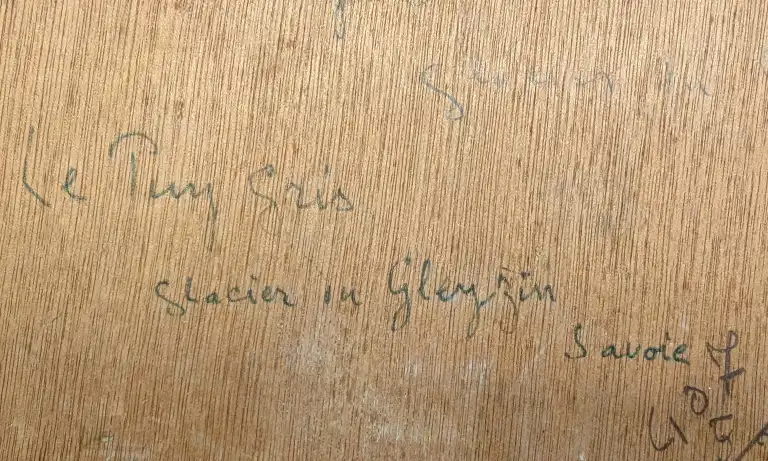 Le Puy Gris
glacier du Gleyzin
Savoie